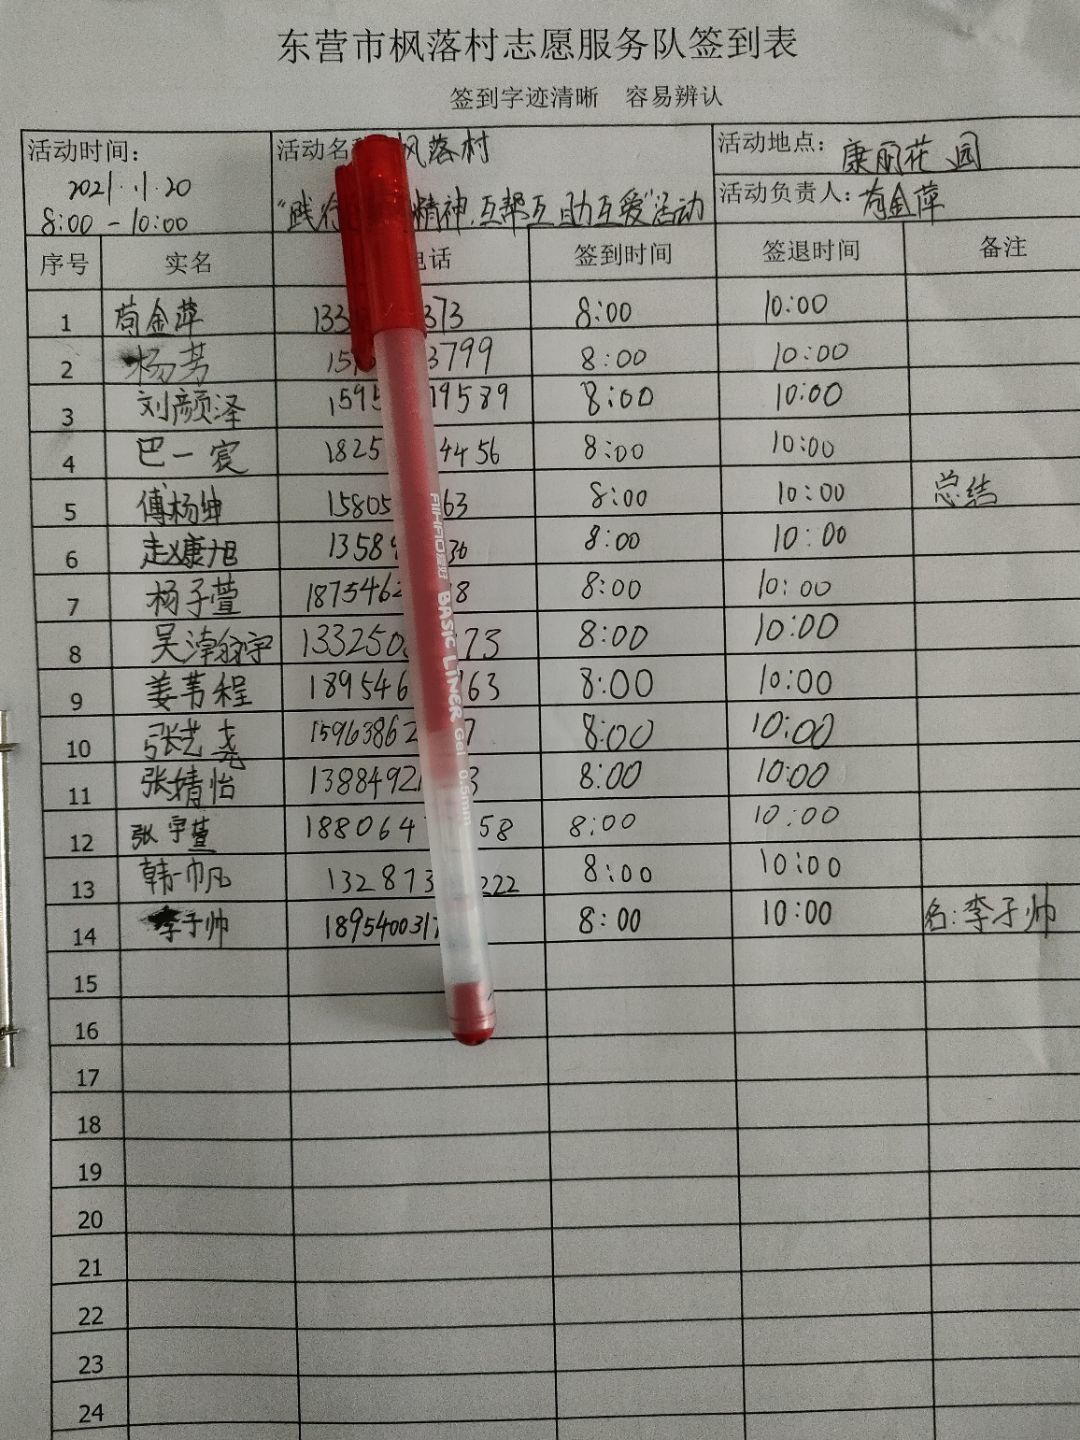 东营市枫落村志愿服务队签到表
签到字迹清晰 容易辨认
活动时间: 2021.11.20 8:00-10:00
活动名 枫落村
"践行 精神,互帮互助互爱"活动
活动地点: 康丽花园
活动负责人: 苘金萍
序号 实名 电话 签到时间 签退时间 备注
1 苘金萍 133 373 8:00 10:00
2 杨芳 15 3799 8:00 10:00
3 刘颜泽 1595 19589 8:00 10:00
4 巴一宸 1825 4456 8:00 10:00
5 傅杨坤 15805 63 8:00 10:00 总结
6 赵康旭 1358 36 8:00 10:00
7 杨子萱 1875462 8 8:00 10:00
8 吴漳翰宇 133250 73 8:00 10:00
9 姜苇程 189546 63 8:00 10:00
10 张艺尧 15963862 7 8:00 10:00
11 张婧怡 1388492 3 8:00 10:00
12 张宇萱 1880647 58 8:00 10:00
13 韩一帆 132873 222 8:00 10:00
14 李子帅 189540031 8:00 10:00 名:李子帅
15
16
17
18
19
20
21
22
23
24
AIHAO爱好 BASIC LINER Gel 0.5mm